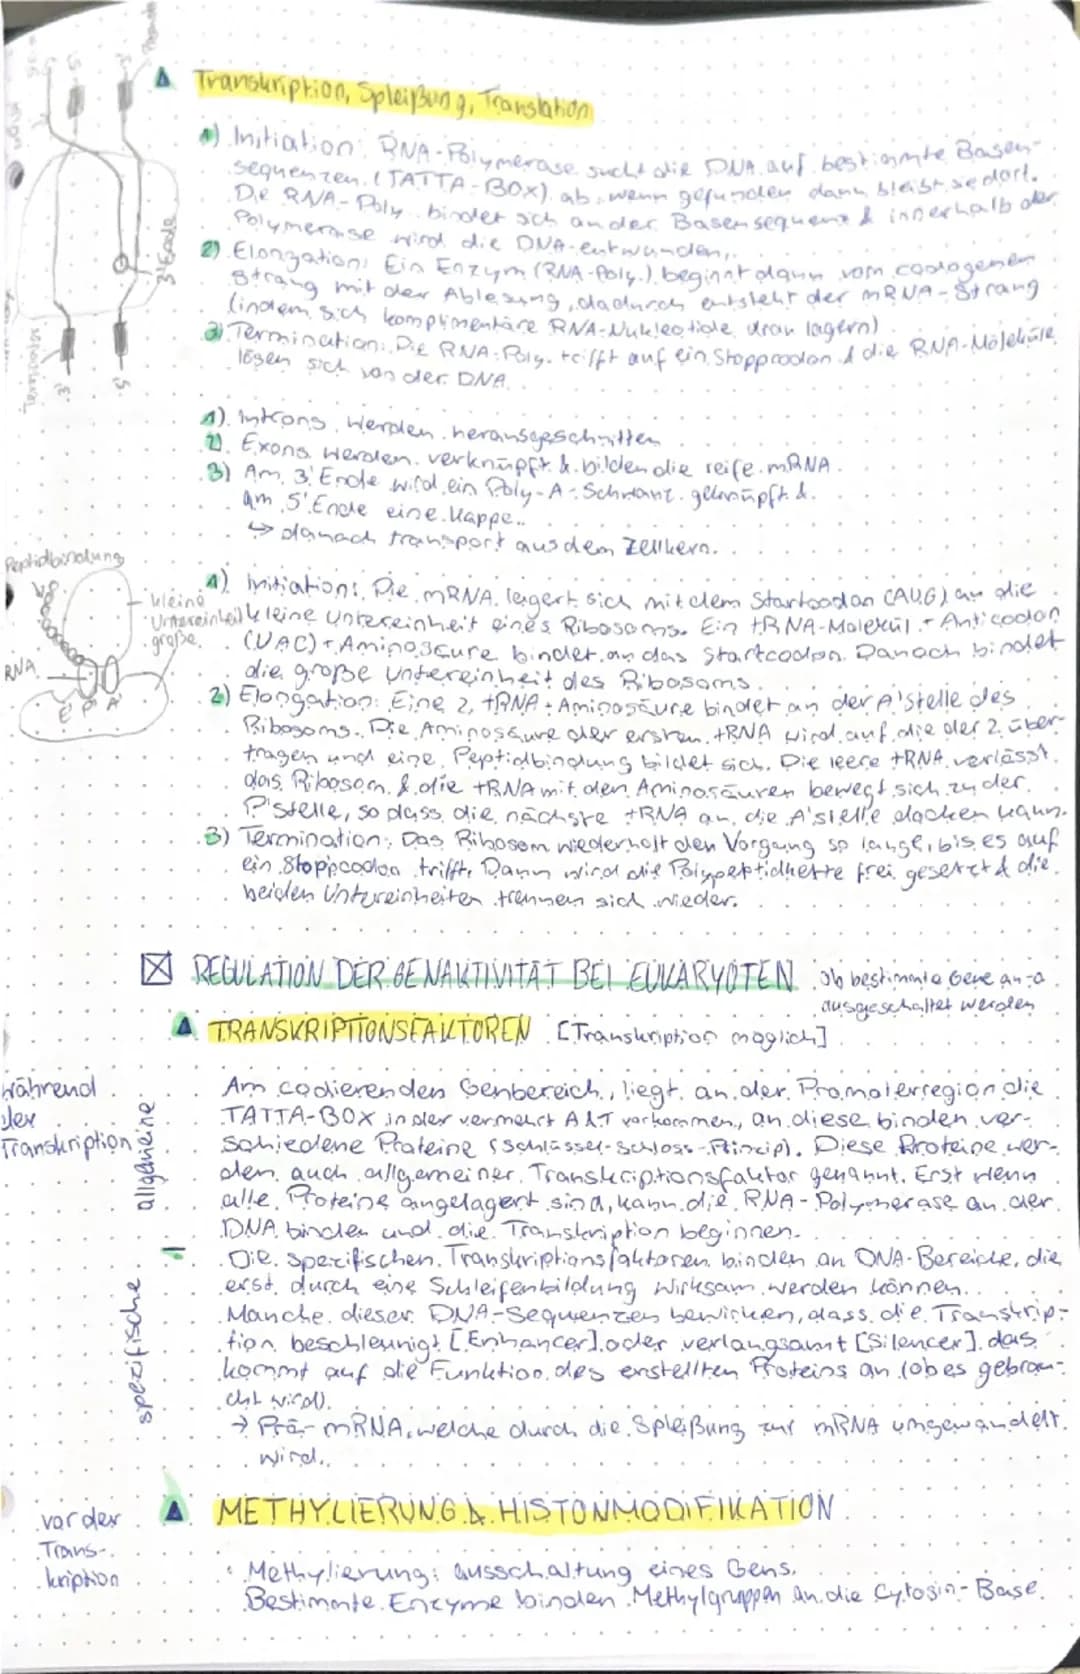 Transkription, Spleißung, Translation
1) Initiation: RNA-Polymerase sucht die DNA auf bestimmte Basen-
sequenzen (TATTA-BOX) ab, wenn gefunden dann bleibt sie dort.
Die RNA-Poly. bindet sich an der Basensequenz & innerhalb der
Polymerase wird die DNA entwunden.
2) Elongation: Ein Enzym (RNA-Poly.) beginnt dann vom codogenen
Strang mit der Ablesung, dadurch entsteht der mRNA-Strang
(indem sich komplimentäre RNA-Nukleotide dran lagern)
3) Termination: Die RNA-Poly. trifft auf ein Stoppcodon & die RNA-Moleküle
lösen sich von der DNA.
1) Introns werden herausgeschnitten
2) Exons werden verknüpft & bilden die reife mRNA
3) Am 3' Ende wird ein Poly-A-Schwanz geknüpft &
am 5' Ende eine Kappe.
↳ danach transport aus dem Zellkern.
1) Initiation: Die mRNA lagert sich mit dem Startcodon (AUG) an die
kleine Untereinheit eines Ribosoms. Ein tRNA-Molekül + Anticodon
(UAC) + Aminosäure bindet an das Startcodon. Danach bindet
die große Untereinheit des Ribosoms.
2) Elongation: Eine 2. tRNA + Aminosäure bindet an der A'Stelle des
Ribosoms. Die Aminosäure der ersten tRNA wird auf die der 2. über-
tragen und eine Peptidbindung bildet sich. Die leere tRNA verlässt
das Ribosom & die tRNA mit den Aminosäuren bewegt sich zu der
P'stelle, so dass die nächste tRNA an die A'stelle docken kann.
3) Termination: Das Ribosom wiederholt den Vorgang so lange, bis es auf
ein Stoppcodon trifft. Dann wird die Polypeptidkette frei gesetzt & die
beiden Untereinheiten trennen sich wieder.
3'Ende
3'
5'
Peptidbindung
kleine
Untereinheit
große
RNA
E P A
REGULATION DER GENAKTIVITÄT BEI EUKARYOTEN
ob bestimmte Gene an-o
ausgeschaltet werden
TRANSKRIPTIONSFAKTOREN [Transkription möglich]
während
der
Transkription
allgemeine
Am codierenden Genbereich, liegt an der Promoterregion die
TATTA-BOX in der vermehrt A&T vorkommen, an diese binden ver-
schiedene Proteine (Schlüssel-Schloss-Prinzip). Diese Proteine wer-
den auch allgemeiner Transkriptionsfaktor genannt. Erst wenn
alle Proteine angelagert sind, kann die RNA-Polymerase an der
DNA binden und die Transkription beginnen.
spezifische
Die spezifischen Transkriptionsfaktoren binden an DNA-Bereiche, die
erst durch eine Schleifenbildung wirksam werden können.
Manche dieser DNA-Sequenzen bewirken, dass die Transkrip-
tion beschleunigt [Enhancer] oder verlangsamt [Silencer], das
kommt auf die Funktion des erstellten Proteins an (ob es gebrau-
cht wird).
→ Prä-mRNA, welche durch die Spleißung zur mRNA umgewandelt
wird.
vor der
Trans-
kription
METHYLIERUNG & HISTONMODIFIKATION
Methylierung: Ausschaltung eines Gens.
Bestimmte Enzyme binden Methylgruppen an die Cytosin-Base.